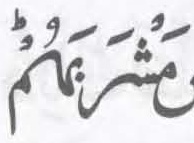 مَشْرَبَهُمْ